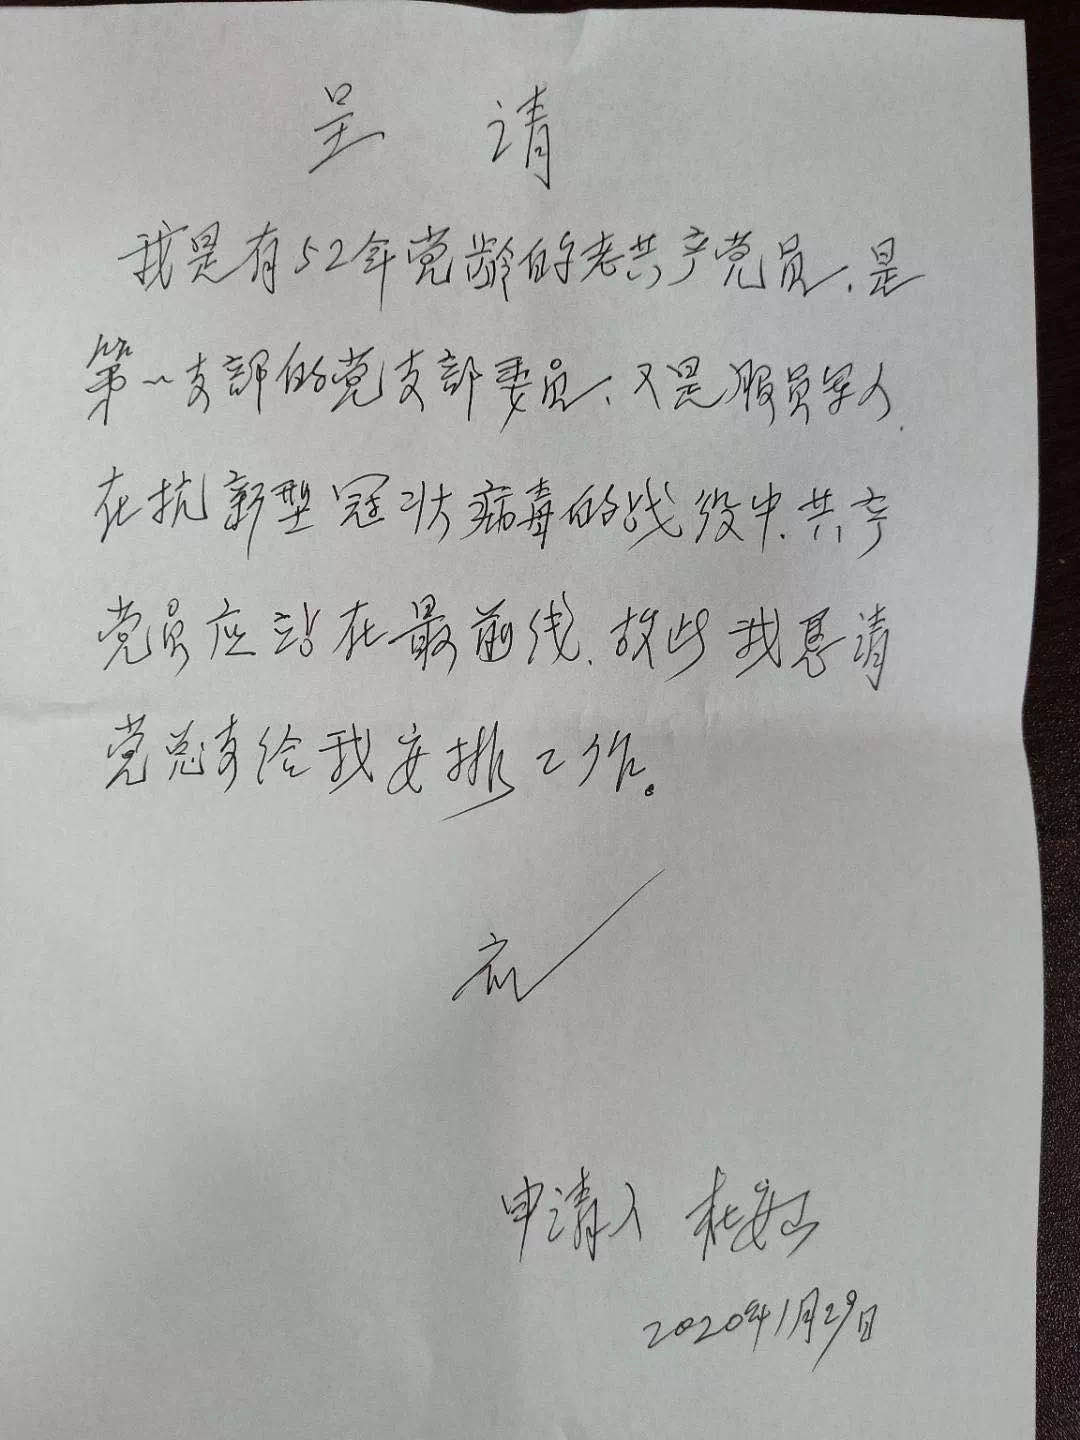 呈 请
我是有52年党龄的老共产党员、是
第一支部的党支部委员、又是服员军人.
在抗新型冠状病毒的战役中.共产
党员应站在最前线.故此我恳请
党总支给我安排工作。
申请人 杜安山
2020年1月29日